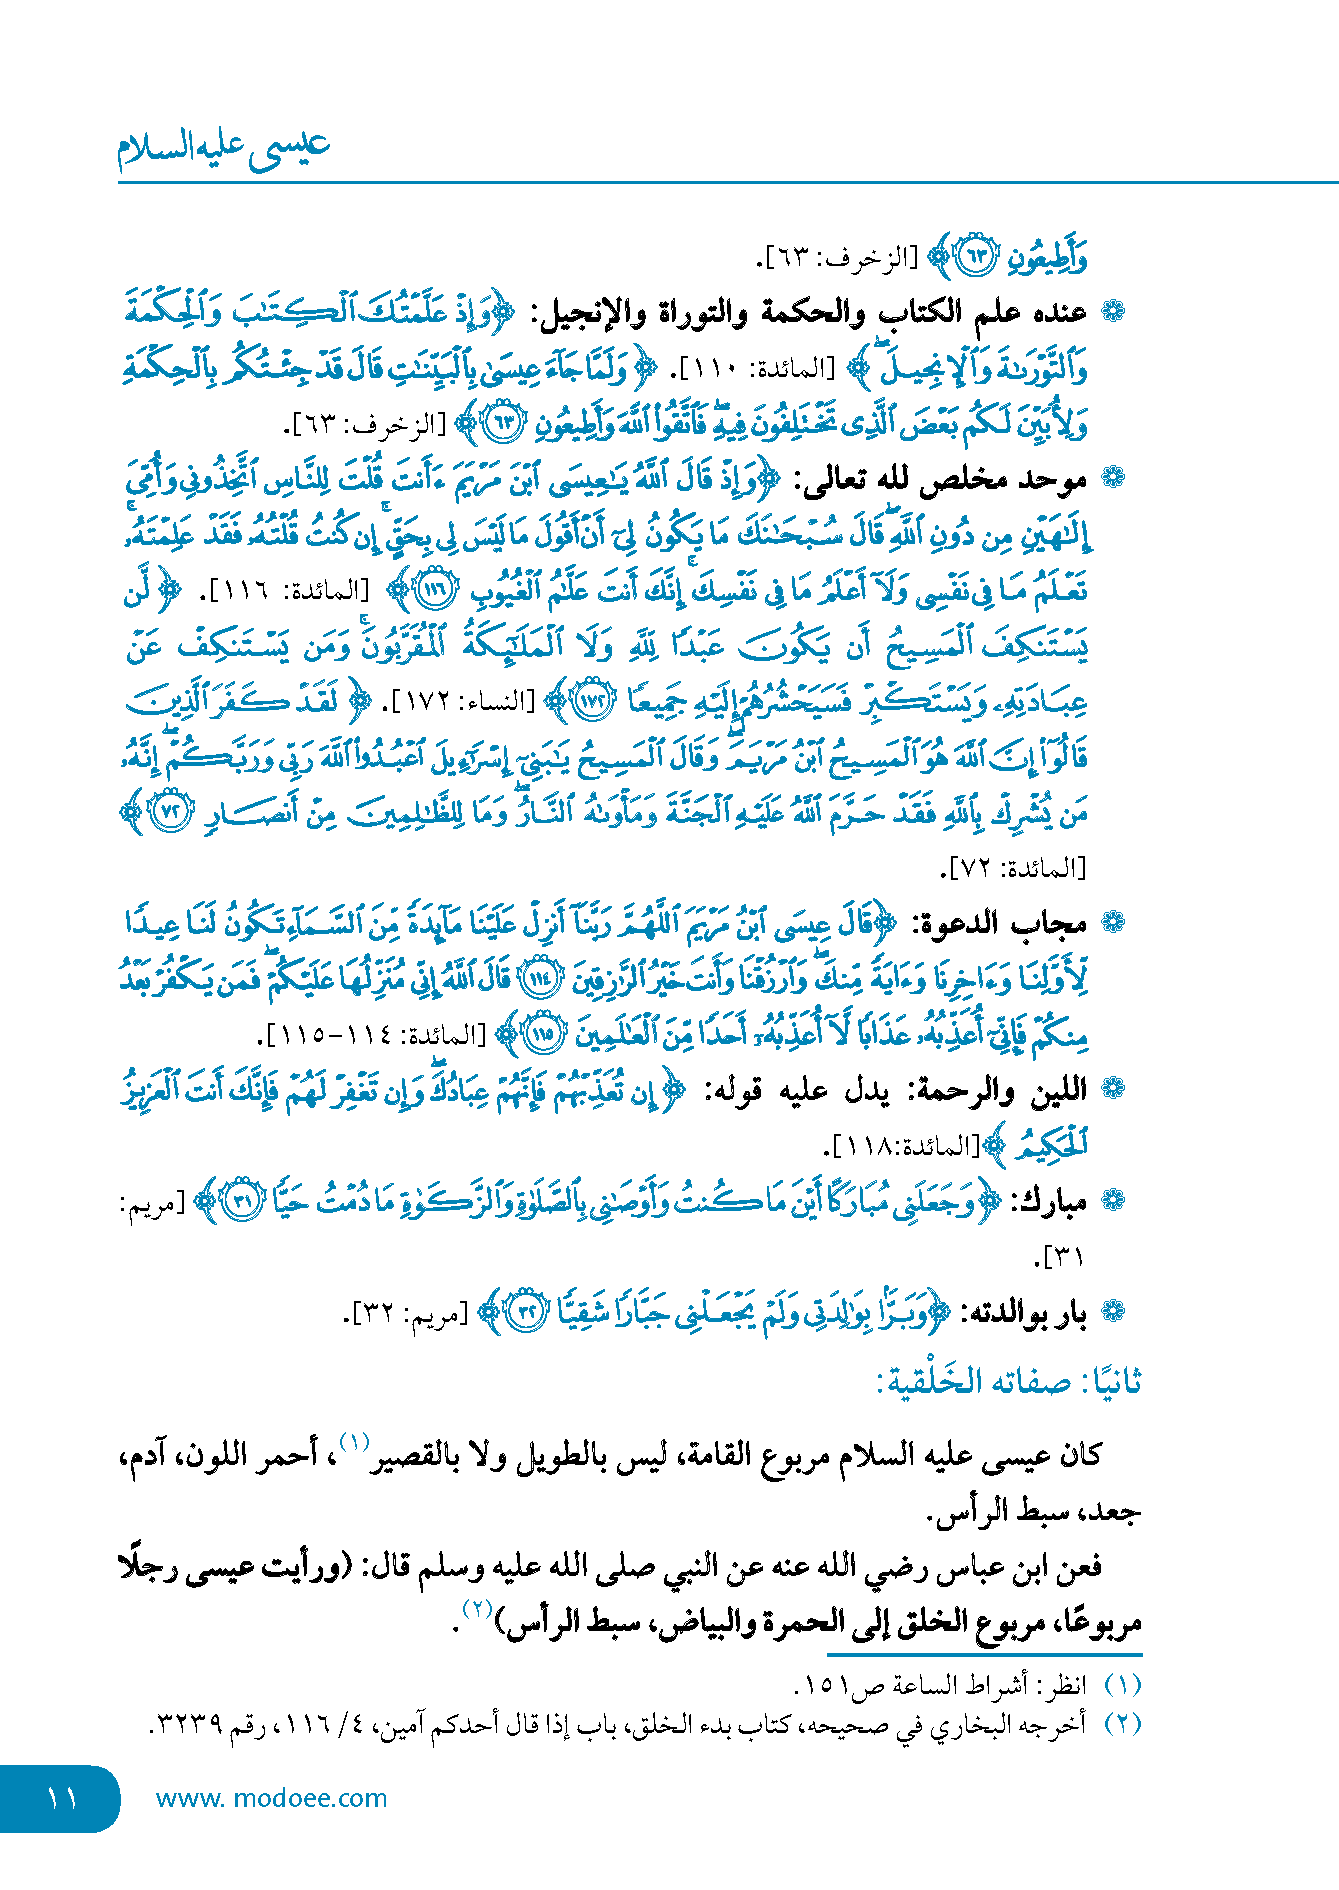 عيسى عليه السلام
وَأَطِيعُونِ ﴿٦٣﴾ [الزخرف: ٦٣].
❁ عنده علم الكتاب والحكمة والتوراة والإنجيل: ﴿وَإِذْ عَلَّمْتُكَ ٱلْكِتَٰبَ وَٱلْحِكْمَةَ
وَٱلتَّوْرَىٰةَ وَٱلْإِنجِيلَ ۖ﴾ [المائدة: ١١٠]. ﴿وَلَمَّا جَآءَ عِيسَىٰ بِٱلْبَيِّنَٰتِ قَالَ قَدْ جِئْتُكُم بِٱلْحِكْمَةِ
وَلِأُبَيِّنَ لَكُم بَعْضَ ٱلَّذِى تَخْتَلِفُونَ فِيهِ ۖ فَٱتَّقُوا۟ ٱللَّهَ وَأَطِيعُونِ ٦٣﴾ [الزخرف: ٦٣].
❁ موحد مخلص لله تعالى: ﴿وَإِذْ قَالَ ٱللَّهُ يَٰعِيسَى ٱبْنَ مَرْيَمَ ءَأَنتَ قُلْتَ لِلنَّاسِ ٱتَّخِذُونِى وَأُمِّىَ
إِلَٰهَيْنِ مِن دُونِ ٱللَّهِ ۖ قَالَ سُبْحَٰنَكَ مَا يَكُونُ لِىٓ أَنْ أَقُولَ مَا لَيْسَ لِى بِحَقٍّ ۚ إِن كُنتُ قُلْتُهُۥ فَقَدْ عَلِمْتَهُۥ ۚ
تَعْلَمُ مَا فِى نَفْسِى وَلَآ أَعْلَمُ مَا فِى نَفْسِكَ ۚ إِنَّكَ أَنتَ عَلَّٰمُ ٱلْغُيُوبِ ١١٦﴾ [المائدة: ١١٦]. ﴿لَّن
يَسْتَنكِفَ ٱلْمَسِيحُ أَن يَكُونَ عَبْدًا لِّلَّهِ وَلَا ٱلْمَلَٰٓئِكَةُ ٱلْمُقَرَّبُونَ ۚ وَمَن يَسْتَنكِفْ عَنْ
عِبَادَتِهِۦ وَيَسْتَكْبِرْ فَسَيَحْشُرُهُمْ إِلَيْهِ جَمِيعًا ١٧٢﴾ [النساء: ١٧٢]. ﴿لَقَدْ كَفَرَ ٱلَّذِينَ
قَالُوٓا۟ إِنَّ ٱللَّهَ هُوَ ٱلْمَسِيحُ ٱبْنُ مَرْيَمَ ۖ وَقَالَ ٱلْمَسِيحُ يَٰبَنِىٓ إِسْرَٰٓءِيلَ ٱعْبُدُوا۟ ٱللَّهَ رَبِّى وَرَبَّكُمْ ۖ إِنَّهُۥ
مَن يُشْرِكْ بِٱللَّهِ فَقَدْ حَرَّمَ ٱللَّهُ عَلَيْهِ ٱلْجَنَّةَ وَمَأْوَىٰهُ ٱلنَّارُ ۖ وَمَا لِلظَّٰلِمِينَ مِنْ أَنصَارٍ ٧٢﴾
[المائدة: ٧٢].
❁ مجاب الدعوة: ﴿قَالَ عِيسَى ٱبْنُ مَرْيَمَ ٱللَّهُمَّ رَبَّنَآ أَنزِلْ عَلَيْنَا مَآئِدَةً مِّنَ ٱلسَّمَآءِ تَكُونُ لَنَا عِيدًا
لِّأَوَّلِنَا وَءَاخِرِنَا وَءَايَةً مِّنكَ ۖ وَٱرْزُقْنَا وَأَنتَ خَيْرُ ٱلرَّٰزِقِينَ ١١٤ قَالَ ٱللَّهُ إِنِّى مُنَزِّلُهَا عَلَيْكُمْ ۖ فَمَن يَكْفُرْ بَعْدُ
مِنكُمْ فَإِنِّىٓ أُعَذِّبُهُۥ عَذَابًا لَّآ أُعَذِّبُهُۥٓ أَحَدًا مِّنَ ٱلْعَٰلَمِينَ ١١٥﴾ [المائدة: ١١٤-١١٥].
❁ اللين والرحمة: يدل عليه قوله: ﴿إِن تُعَذِّبْهُمْ فَإِنَّهُمْ عِبَادُكَ ۖ وَإِن تَغْفِرْ لَهُمْ فَإِنَّكَ أَنتَ ٱلْعَزِيزُ
ٱلْحَكِيمُ﴾ [المائدة:١١٨].
❁ مبارك: ﴿وَجَعَلَنِى مُبَارَكًا أَيْنَ مَا كُنتُ وَأَوْصَٰنِى بِٱلصَّلَوٰةِ وَٱلزَّكَوٰةِ مَا دُمْتُ حَيًّا ٣١﴾ [مريم:
٣١].
❁ بار بوالدته: ﴿وَبَرًّۢا بِوَٰلِدَتِى وَلَمْ يَجْعَلْنِى جَبَّارًا شَقِيًّا ٣٢﴾ [مريم: ٣٢].
ثانيًا: صفاته الخَلْقية:
كان عيسى عليه السلام مربوع القامة، ليس بالطويل ولا بالقصير(١)، أحمر اللون، آدم،
جعد، سبط الرأس.
فعن ابن عباس رضي الله عنه عن النبي صلى الله عليه وسلم قال: (ورأيت عيسى رجلًا
مربوعًا، مربوع الخلق إلى الحمرة والبياض، سبط الرأس)(٢).
(١) انظر: أشراط الساعة ص١٥١.
(٢) أخرجه البخاري في صحيحه، كتاب بدء الخلق، باب إذا قال أحدكم آمين، ٤/ ١١٦، رقم ٣٢٣٩.
www. modoee.com ١١